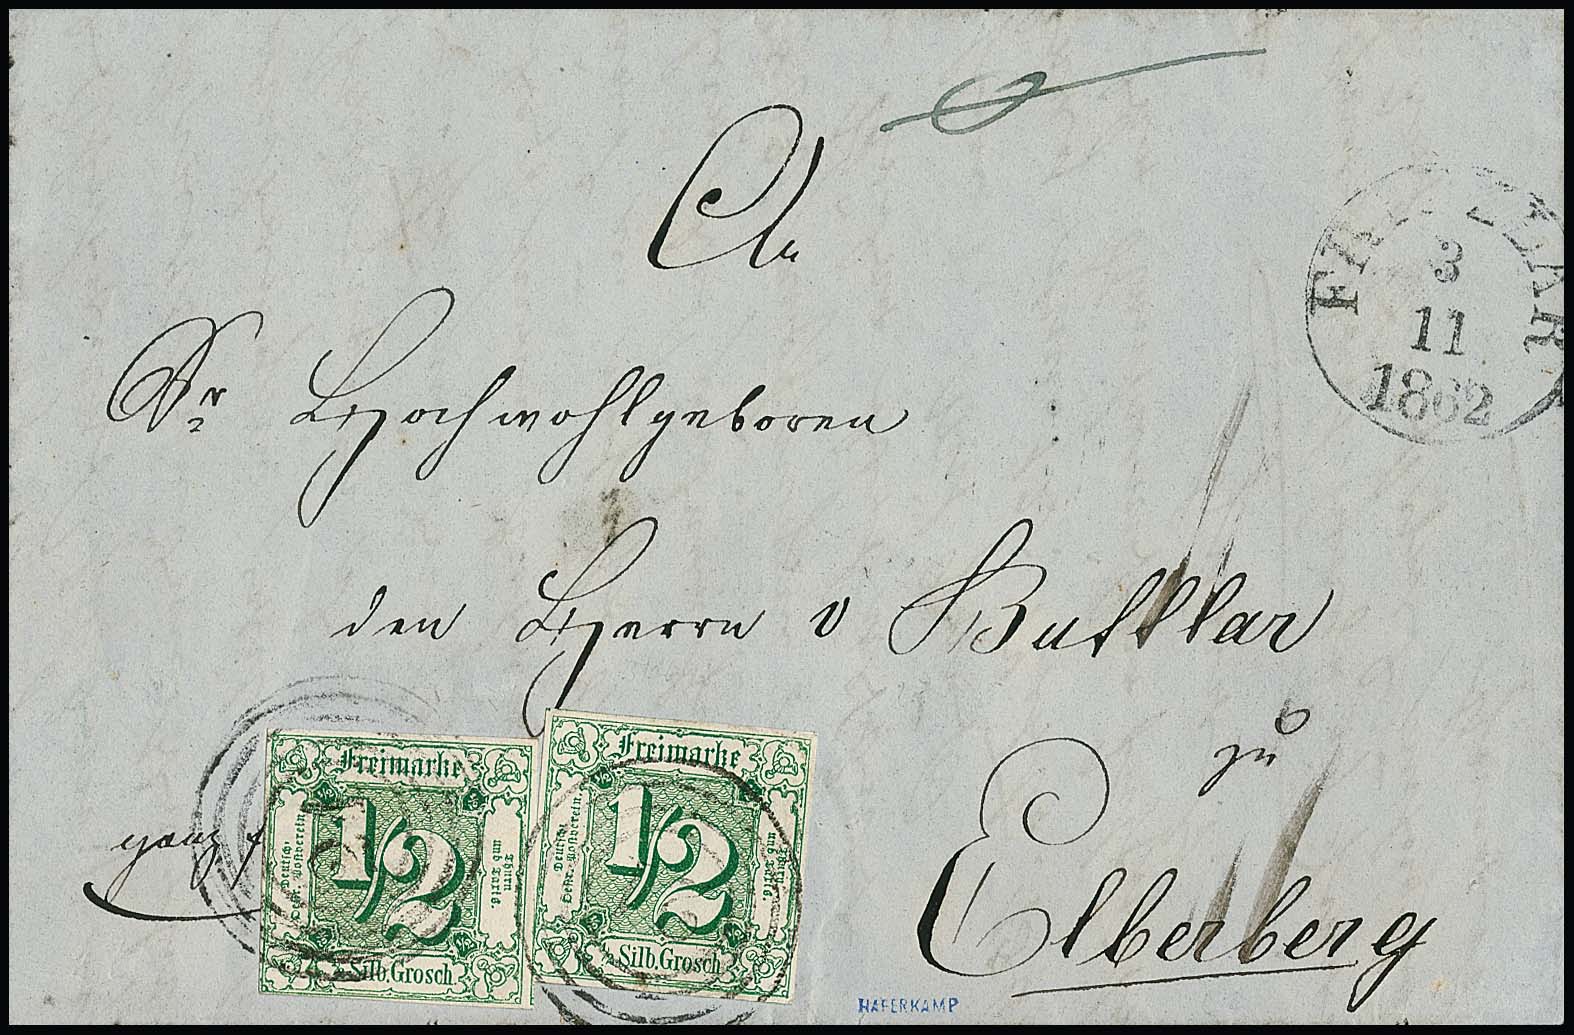 An
FRITZLAR
3
11
1862
Sr Hochwohlgeboren
den Herrn v Buttlar
zu
Elberberg
ganz f
Freimarke
1/2
Silb.Grosch
Deutsch
Oestr. Postverein.
Thurn
und Taxis.
Freimarke
1/2
Silb.Grosch
Deutsch
Oestr. Postverein.
Thurn
und Taxis.
HAFERKAMP